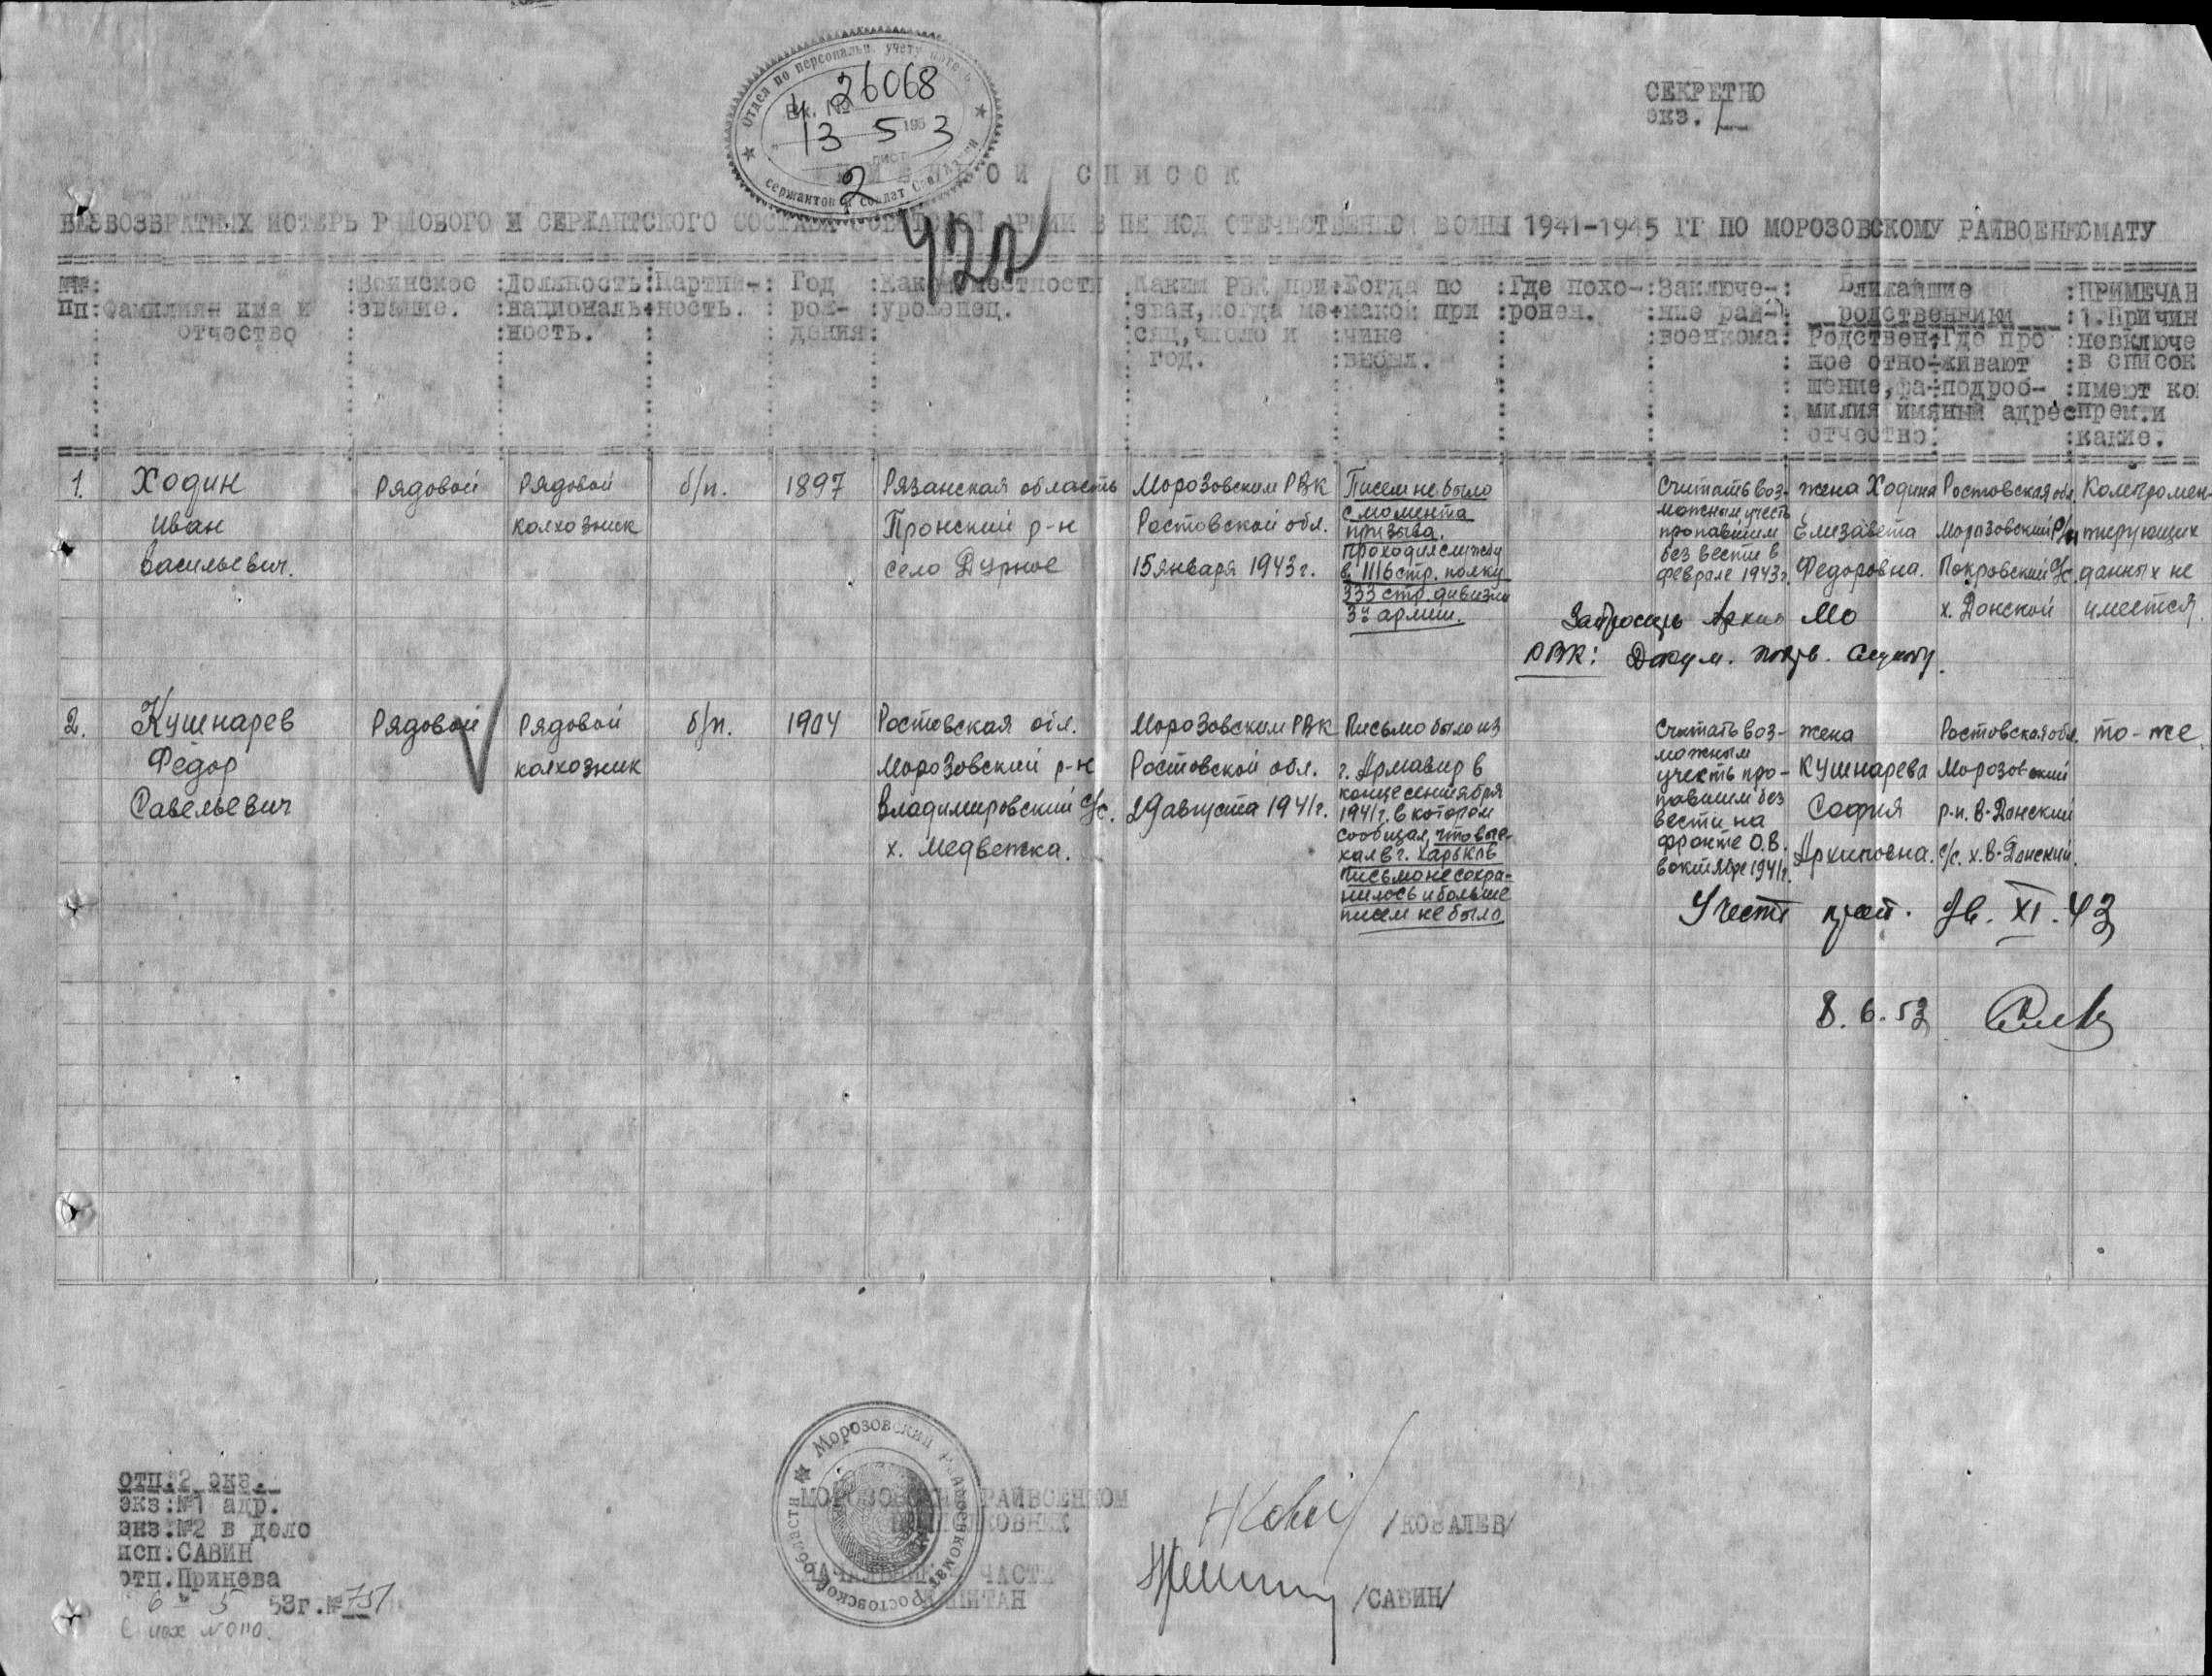 Отдел по персональн. учету потерь
сержантов и солдат
Вх. № 26068
13 5 1953
лист
2
СЕКРЕТНО
экз. 1
ИМЕННОЙ СПИСОК
422
БЕЗВОЗВРАТНЫХ ПОТЕРЬ РЯДОВОГО И СЕРЖАНТСКОГО СОСТАВА СОВЕТСКОЙ АРМИИ В ПЕРИОД ОТЕЧЕСТВЕННОЙ ВОЙНЫ 1941-1945 ГГ ПО МОРОЗОВСКОМУ РАЙВОЕНКОМАТУ
№№ пп
Фамилия имя и отчество
Воинское звание.
Должность национальность.
Партийность.
Год рождения
Какой местности уроженец.
Каким РВК призван, когда месяц, число и год.
Когда по какой причине выбыл.
Где похоронен.
Заключение райвоенкома
Ближайшие родственники
Родственное отношение, фамилия имя отчество
Где проживают подробный адрес
ПРИМЕЧАН
1. Причин
невключе
в список
имеют ко
пром. и
какие.
1.
Ходин
Иван
Васильевич.
Рядовой
Рядовой
колхозник
б/п.
1897
Рязанская область
Пронский р-н
село Дурное
Морозовским РВК
Ростовской обл.
15 января 1943 г.
Писем не было
с момента
призыва.
проходил службу
в 1116 стр. полку
333 стр. дивизии
3й армии.
Считать воз-
можным учесть
пропавшим
без вести в
феврале 1943 г.
жена Ходина
Елизавета
Федоровна.
Ростовская обл.
Морозовский р/н
Покровский с/с.
х. Донской
Компромен-
тирующих
данных не
имеется.
Запросить Архив МО
РВК: Докум.
2.
Кушнарев
Федор
Савельевич
Рядовой
Рядовой
колхозник
б/п.
1904
Ростовская обл.
Морозовский р-н
Владимировский с/с.
х. Медветка.
Морозовским РВК
Ростовской обл.
29 августа 1941 г.
Письмо было из
г. Армавир в
конце сентября
1941 г. в котором
сообщал, что вые-
хал в г. Харьков
письмо не сохра-
нилось и больше
писем не было
Считать воз-
можным
учесть про-
павшим без
вести на
фронте О.В.
в октябре 1941 г.
жена
Кушнарева
София
Архиповна.
Ростовская обл.
Морозовский
р-н. В-Донский
с/с. х. В-Донский.
то-же.
Учесть XI. 43
8. 6. 53
Морозовский Райвоенкомат Ростовской области
МОРОЗОВСКИЙ РАЙВОЕНКОМ
ПОДПОЛКОВНИК
/КОВАЛЕВ/
НАЧАЛЬНИК ЧАСТИ
КАПИТАН
/САВИН/
отп. 2 экз.
экз: №1 адр.
экз: №2 в дело
исп: САВИН
отп. Принева
6 5 53г. № 757